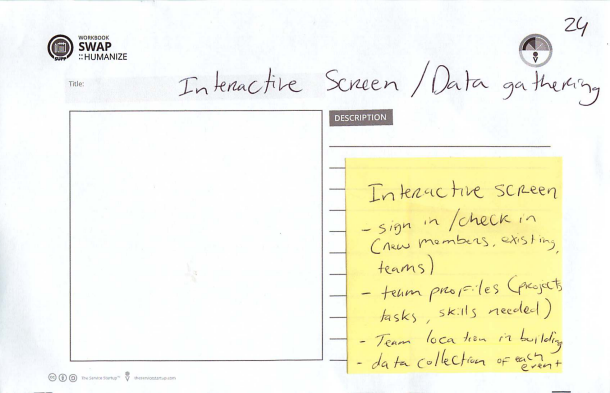 24
WORKBOOK
SWAP
::HUMANIZE
Title:
Interactive Screen / Data gathering
DESCRIPTION
Interactive screen
- sign in / check in
(new members, existing,
teams)
- team profiles (projects
tasks, skills needed)
- Team location in building
- data collection of each
event